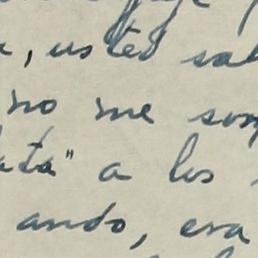 , usted sa
no me so
ata" a los
ando, era